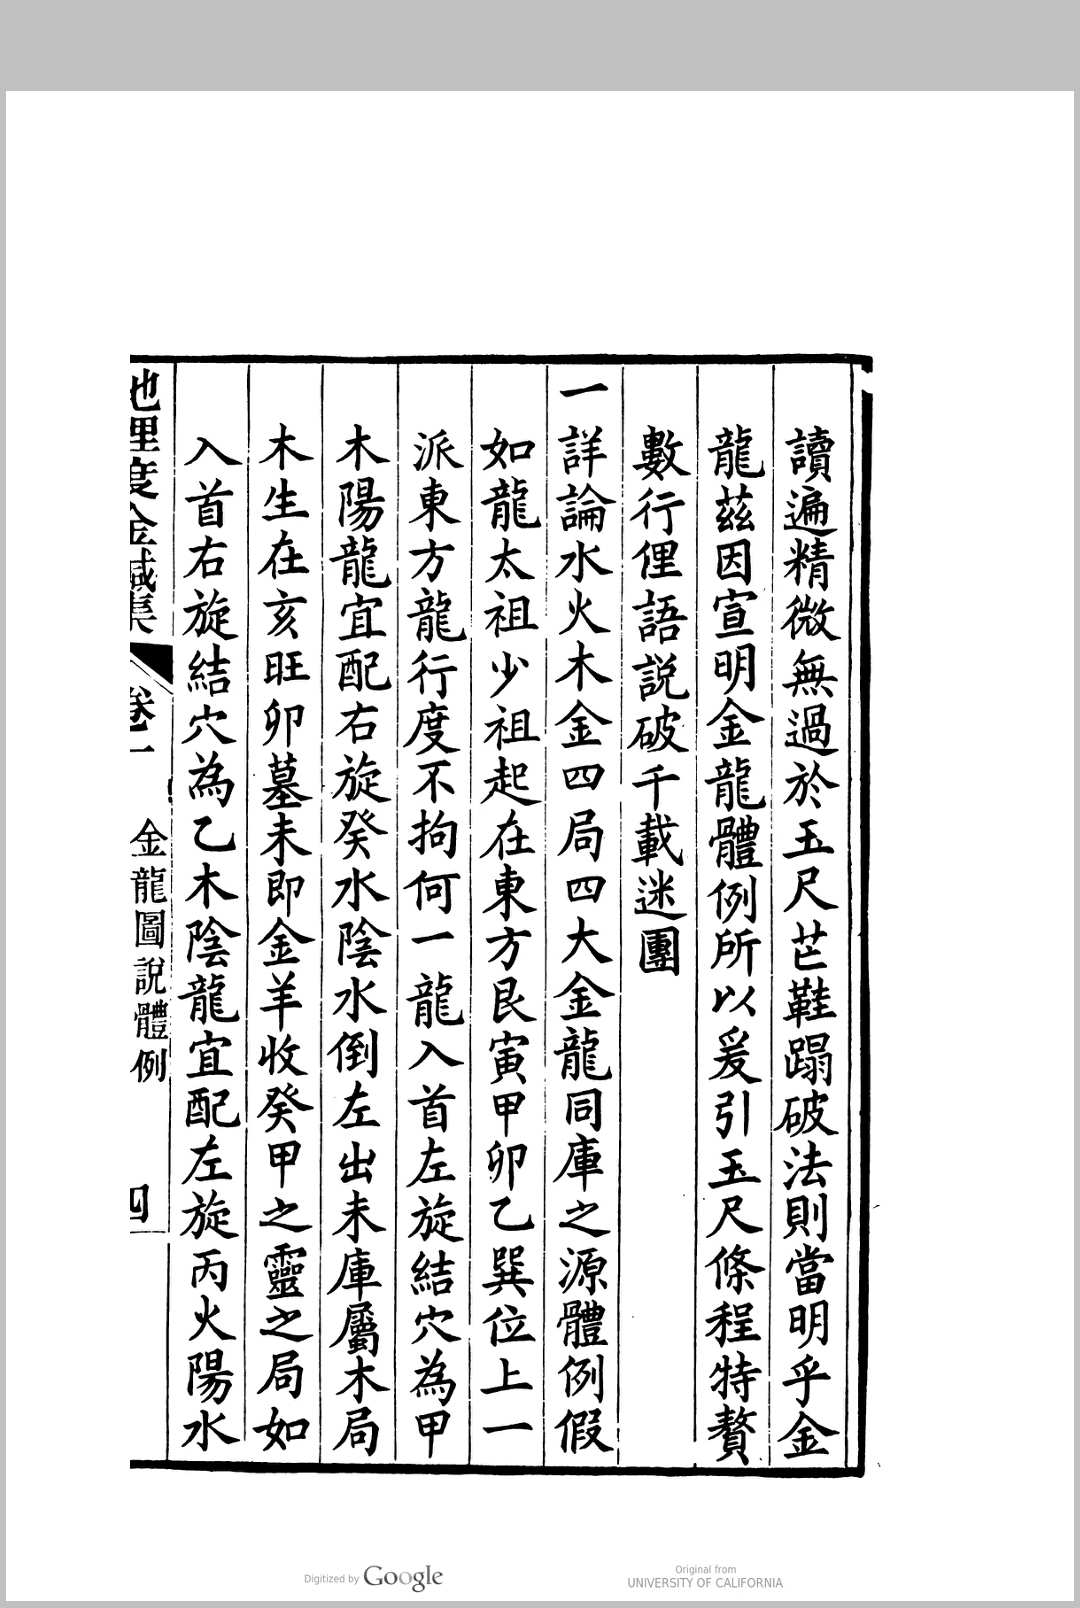 讀遍精微無過於玉尺芒鞋蹋破法則當明乎金
龍茲因宣明金龍體例所以爰引玉尺條程特贅
數行俚語説破千載迷團
一詳論水火木金四局四大金龍同庫之源體例假
如龍太祖少祖起在東方艮寅甲卯乙巽位上一
派東方龍行度不拘何一龍入首左旋結穴為甲
木陽龍宜配右旋癸水陰水倒左出未庫屬木局
木生在亥旺卯墓未即金羊收癸甲之靈之局如
入首右旋結穴為乙木陰龍宜配左旋丙火陽水
地理度金鍼集 卷一 金龍圖說體例 四
Digitized by Google
Original from
UNIVERSITY OF CALIFORNIA